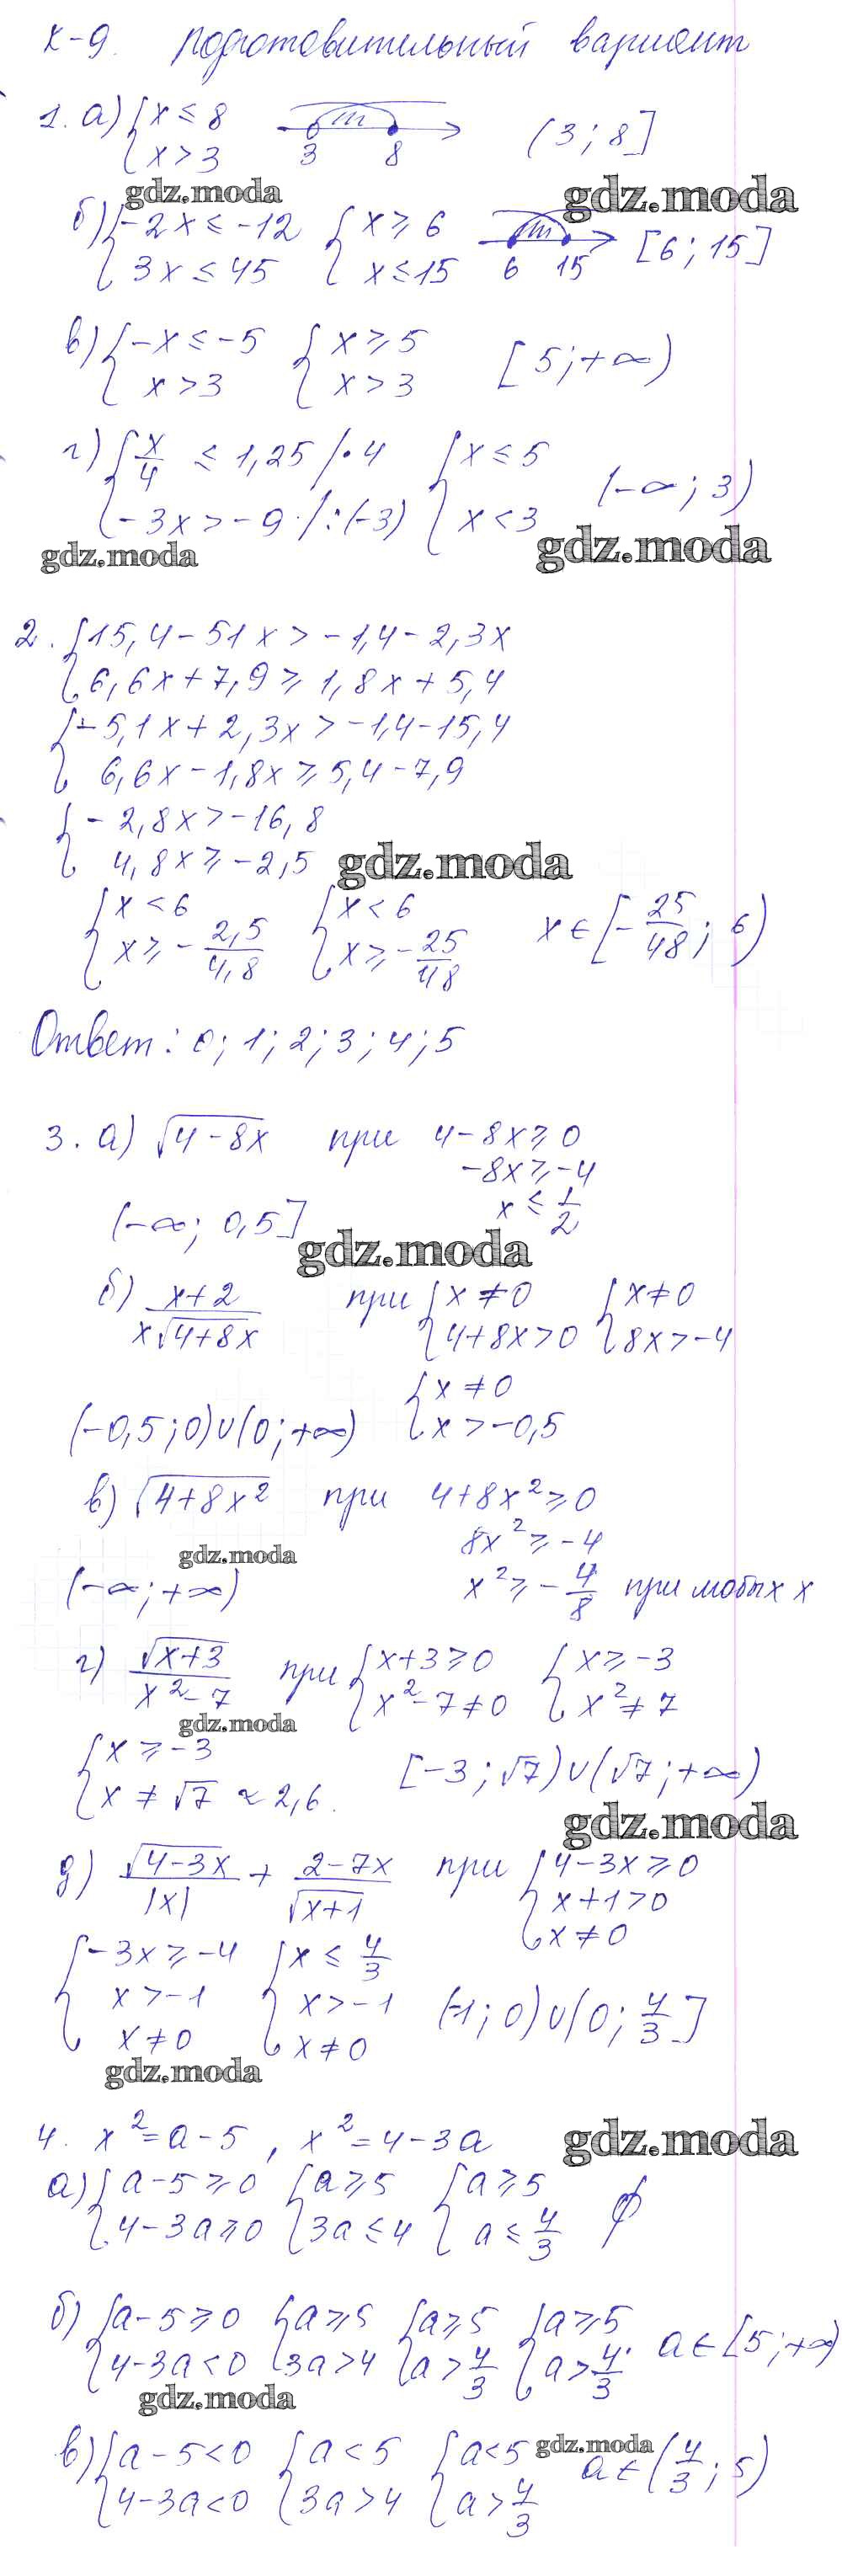 К-9. подготовительный вариант
1. а) {x ≤ 8
{x > 3
3 8
(3; 8]
gdz.moda
gdz.moda
б) {-2x ≤ -12 {x ≥ 6
{3x ≤ 45 {x ≤ 15
6 15
[6; 15]
в) {-x ≤ -5 {x ≥ 5
{x > 3 {x > 3
[5; +∞)
г) {x/4 ≤ 1,25 /·4 {x ≤ 5
{-3x > -9 /:(-3) {x < 3
(-∞; 3)
gdz.moda
gdz.moda
2. {15,4 - 51x > -1,4 - 2,3x
{6,6x + 7,9 ≥ 1,8x + 5,4
{-5,1x + 2,3x > -1,4 - 15,4
{6,6x - 1,8x ≥ 5,4 - 7,9
{-2,8x > -16,8
{4,8x ≥ -2,5
gdz.moda
{x < 6 {x < 6
{x ≥ -2,5/4,8 {x ≥ -25/48
x ∈ [-25/48; 6)
Ответ: 0; 1; 2; 3; 4; 5
3. а) √(4-8x) при 4-8x ≥ 0
-8x ≥ -4
x ≤ 1/2
(-∞; 0,5]
gdz.moda
б) (x+2)/(x√(4+8x)) при {x ≠ 0 {x ≠ 0
{4+8x > 0 {8x > -4
{x ≠ 0
{x > -0,5
(-0,5; 0)∪(0; +∞)
в) √(4+8x²) при 4+8x² ≥ 0
8x² ≥ -4
gdz.moda
x² ≥ -4/8 при любых x
(-∞; +∞)
г) √(x+3)/(x²-7) при {x+3 ≥ 0 {x ≥ -3
{x²-7 ≠ 0 {x² ≠ 7
gdz.moda
{x ≥ -3
{x ≠ √7 ≈ 2,6.
[-3; √7)∪(√7; +∞)
gdz.moda
д) √(4-3x)/|x| + (2-7x)/√(x+1) при {4-3x ≥ 0
{x+1 > 0
{x ≠ 0
{-3x ≥ -4 {x ≤ 4/3
{x > -1 {x > -1
{x ≠ 0 {x ≠ 0
(-1; 0)∪(0; 4/3]
gdz.moda
4. x² = a-5, x² = 4-3a
gdz.moda
а) {a-5 ≥ 0 {a ≥ 5 {a ≥ 5
{4-3a ≥ 0 {3a ≤ 4 {a ≤ 4/3
∅
б) {a-5 ≥ 0 {a ≥ 5 {a ≥ 5 {a ≥ 5
{4-3a < 0 {3a > 4 {a > 4/3 {a > 4/3
a ∈ [5; +∞)
gdz.moda
в) {a-5 < 0 {a < 5 {a < 5
{4-3a < 0 {3a > 4 {a > 4/3
gdz.moda
a ∈ (4/3; 5)